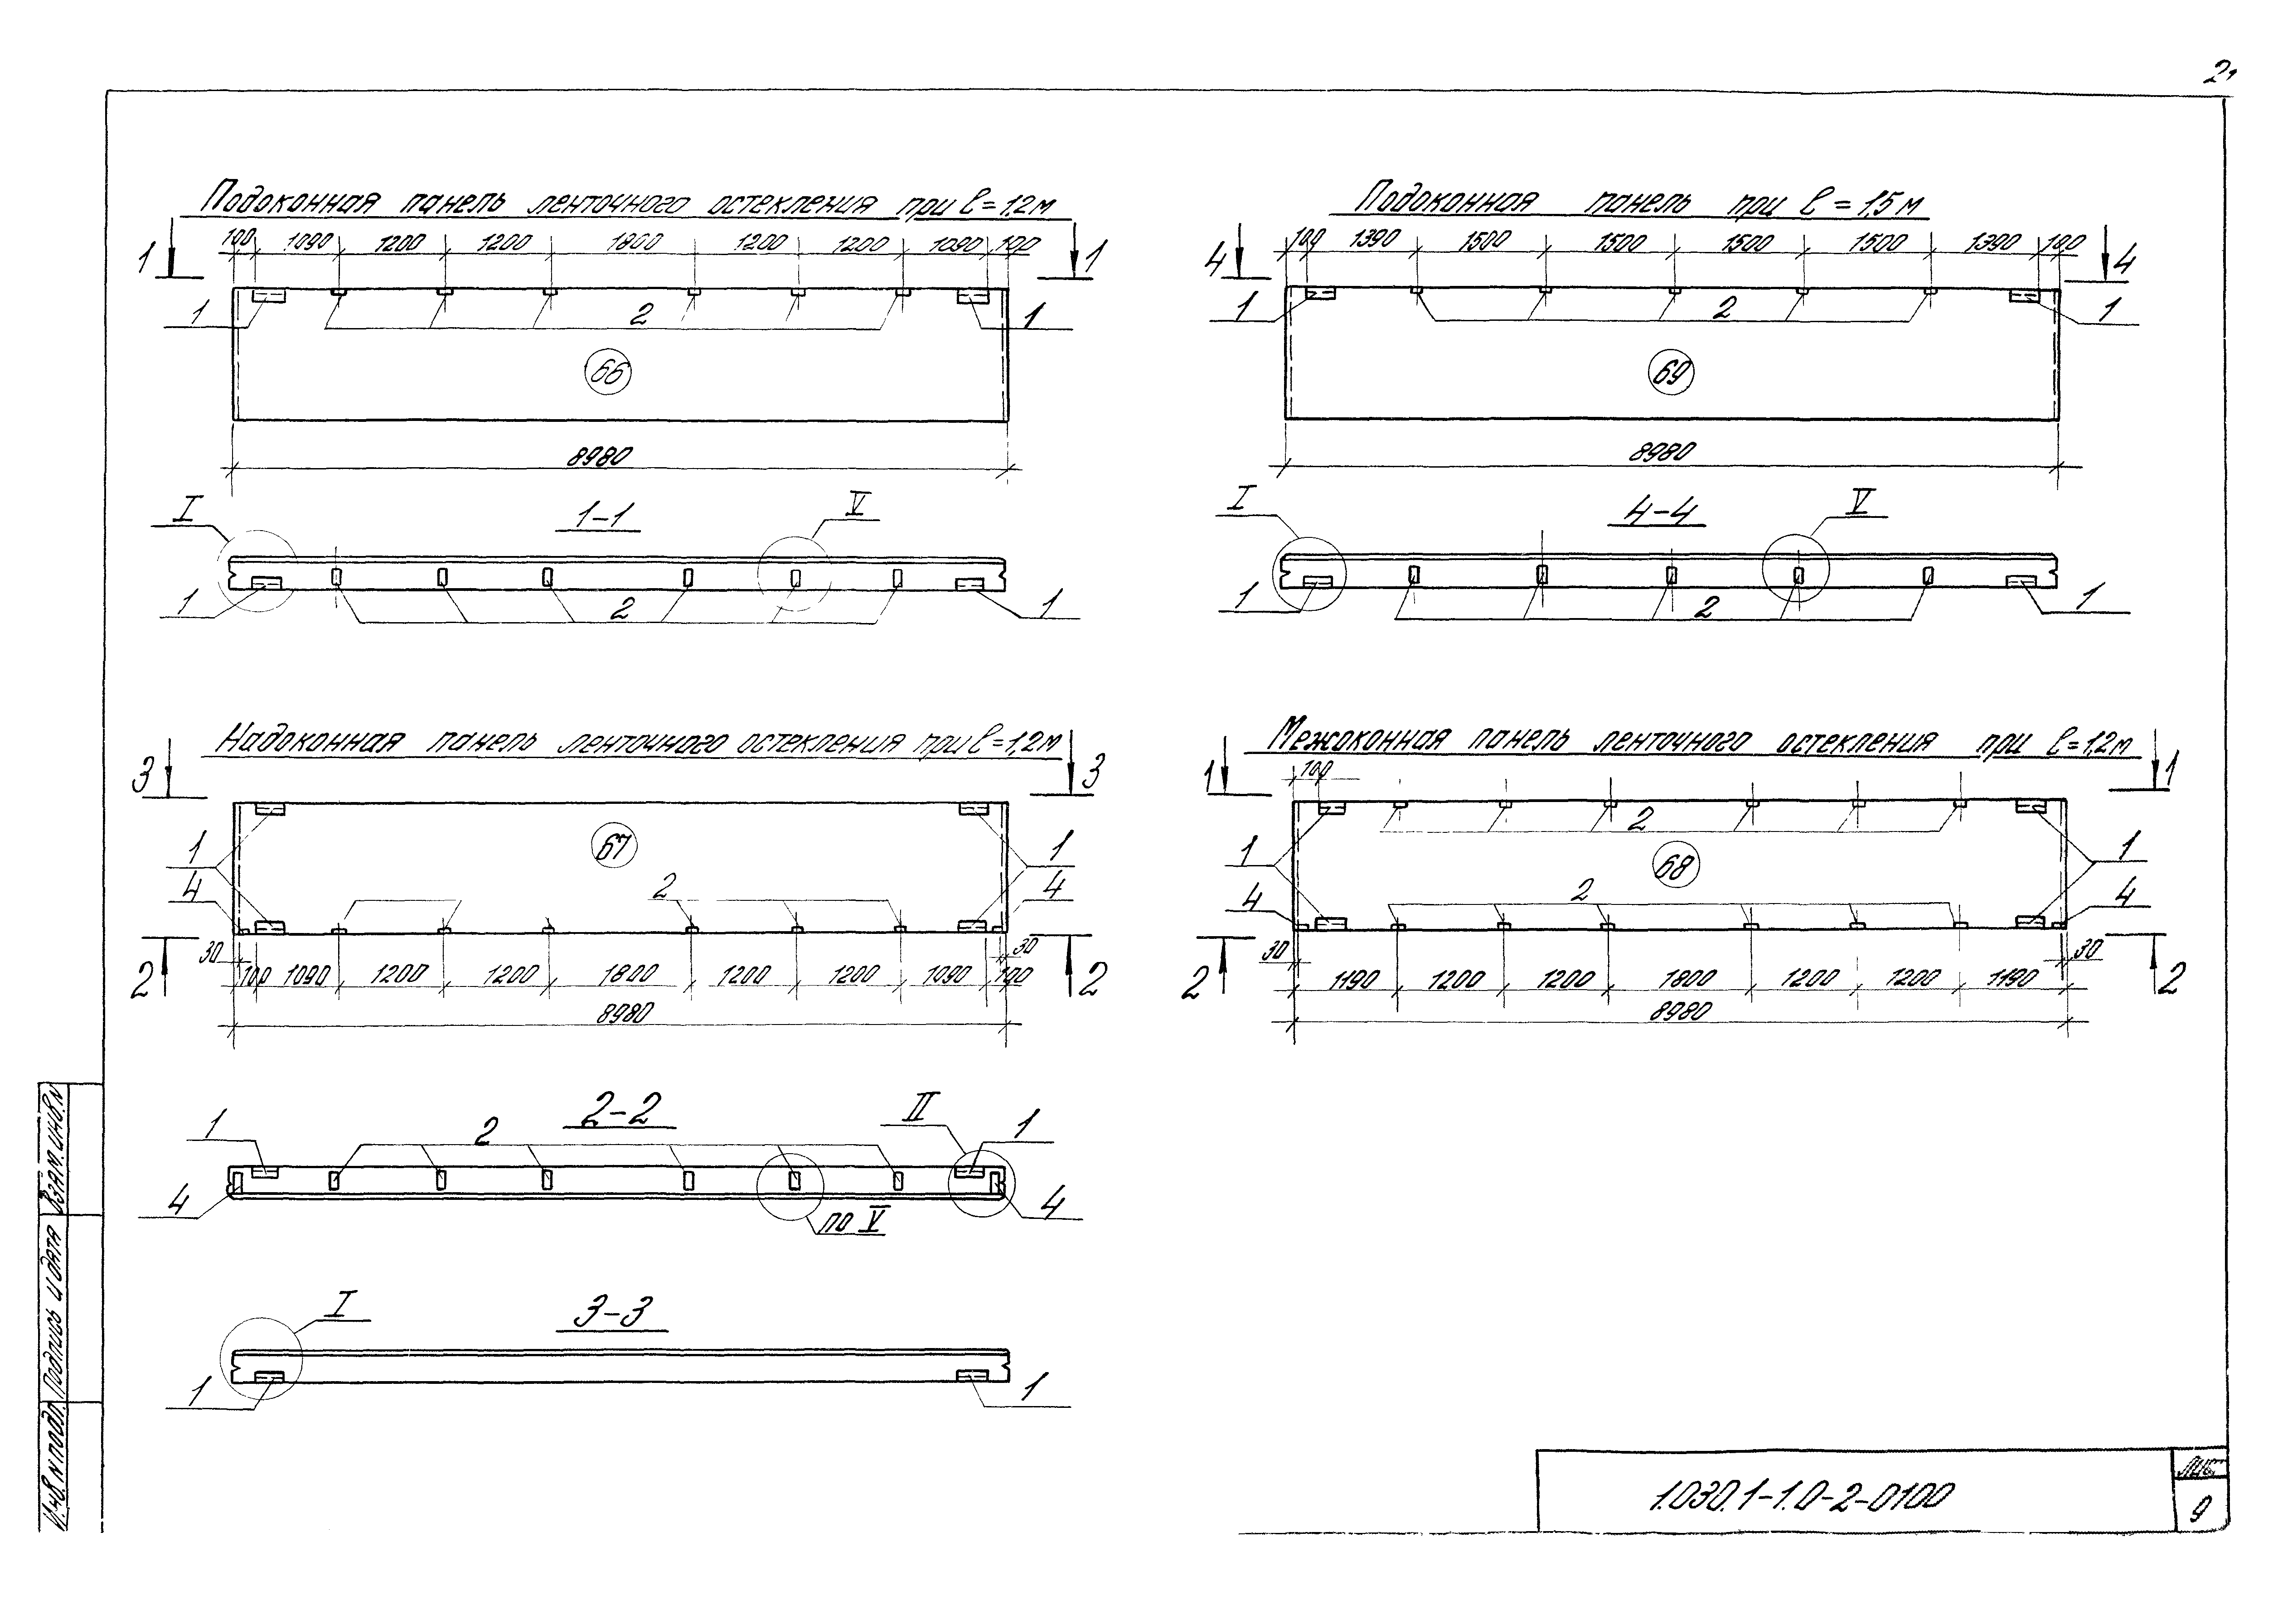 21
Подоконная панель ленточного остекления при l=1,2м
100 1090 1200 1200 1800 1200 1200 1090 100
1 1
1 2 1
66
8980
I 1-1 V
1 2 1
Подоконная панель при l=1,5 м
100 1390 1500 1500 1500 1500 1390 100
4 4
1 2 1
69
8980
I 4-4 V
1 2 1
Надоконная панель ленточного остекления при l=1,2м
3 3
67
1 1
4 2 4
30 30
2 100 1090 1200 1200 1800 1200 1200 1090 100 2
8980
2-2 II
1 2 1
4 4
по V
I 3-3
1 1
Межоконная панель ленточного остекления при l=1,2м
1 100 1
2
1 68 1
4 2 4
30 30
2 1190 1200 1200 1800 1200 1200 1190 2
8980
Инв.N подл. Подпись и дата Взам.инв.N
1.030.1-1.0-2-0100
Лис
9